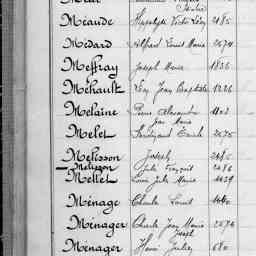 Méaude Hippolyte Victor Léon 2185
Médard Alfred Louis Marie 2674
Meffray Joseph Marie 1836
Méhault Léon Jean Baptiste 1226
Mélaine Pierre Alexandre
Jean Marie
Melet Ferdinand Emile 2675
Melisson Joseph
Melisson Jules François 2676
Mellet Louis Jules Marie 1629
Ménage Charles Louis
Ménager Charles Jean Marie 2676
Joseph
Ménager Henri Julien 680